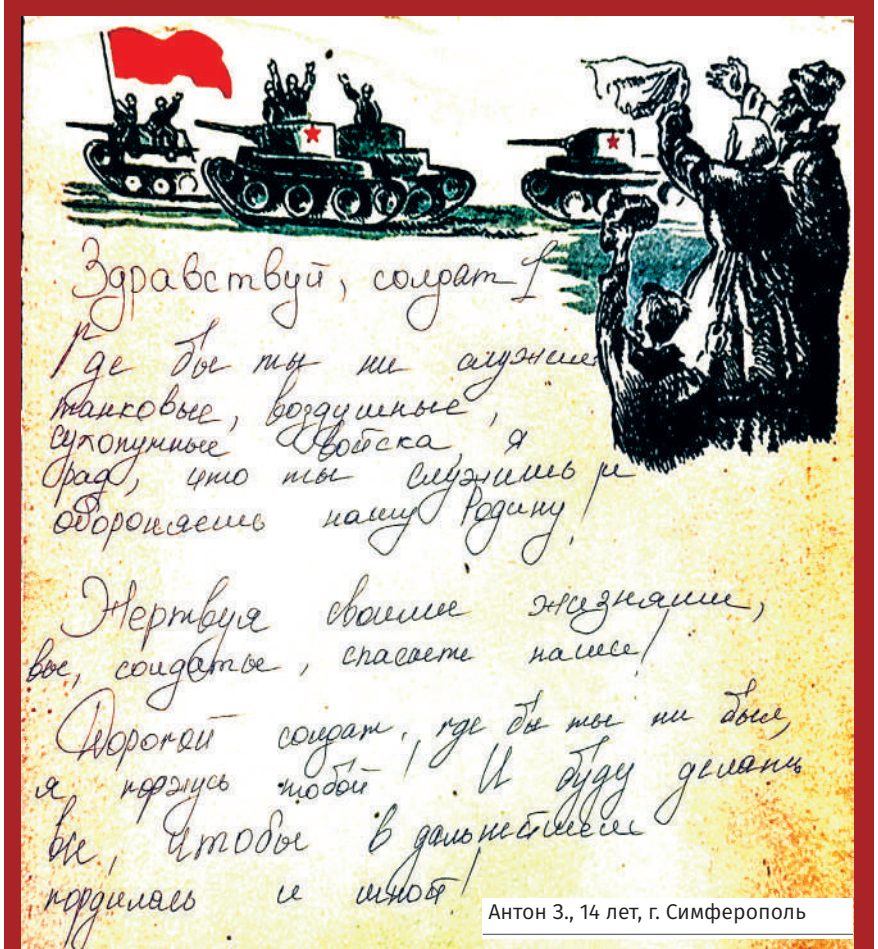 Здравствуй, солдат!
Где бы ты ни служил
танковые, воздушные,
сухопутные войска, я
рад, что ты служишь и
обороняешь нашу Родину!
Жертвуя своими жизнями,
вы, солдаты, спасаете наши!
Дорогой солдат, где бы ты ни был,
я горжусь тобой! И буду делать
все, чтобы в дальнейшем
гордились и мной!
Антон З., 14 лет, г. Симферополь